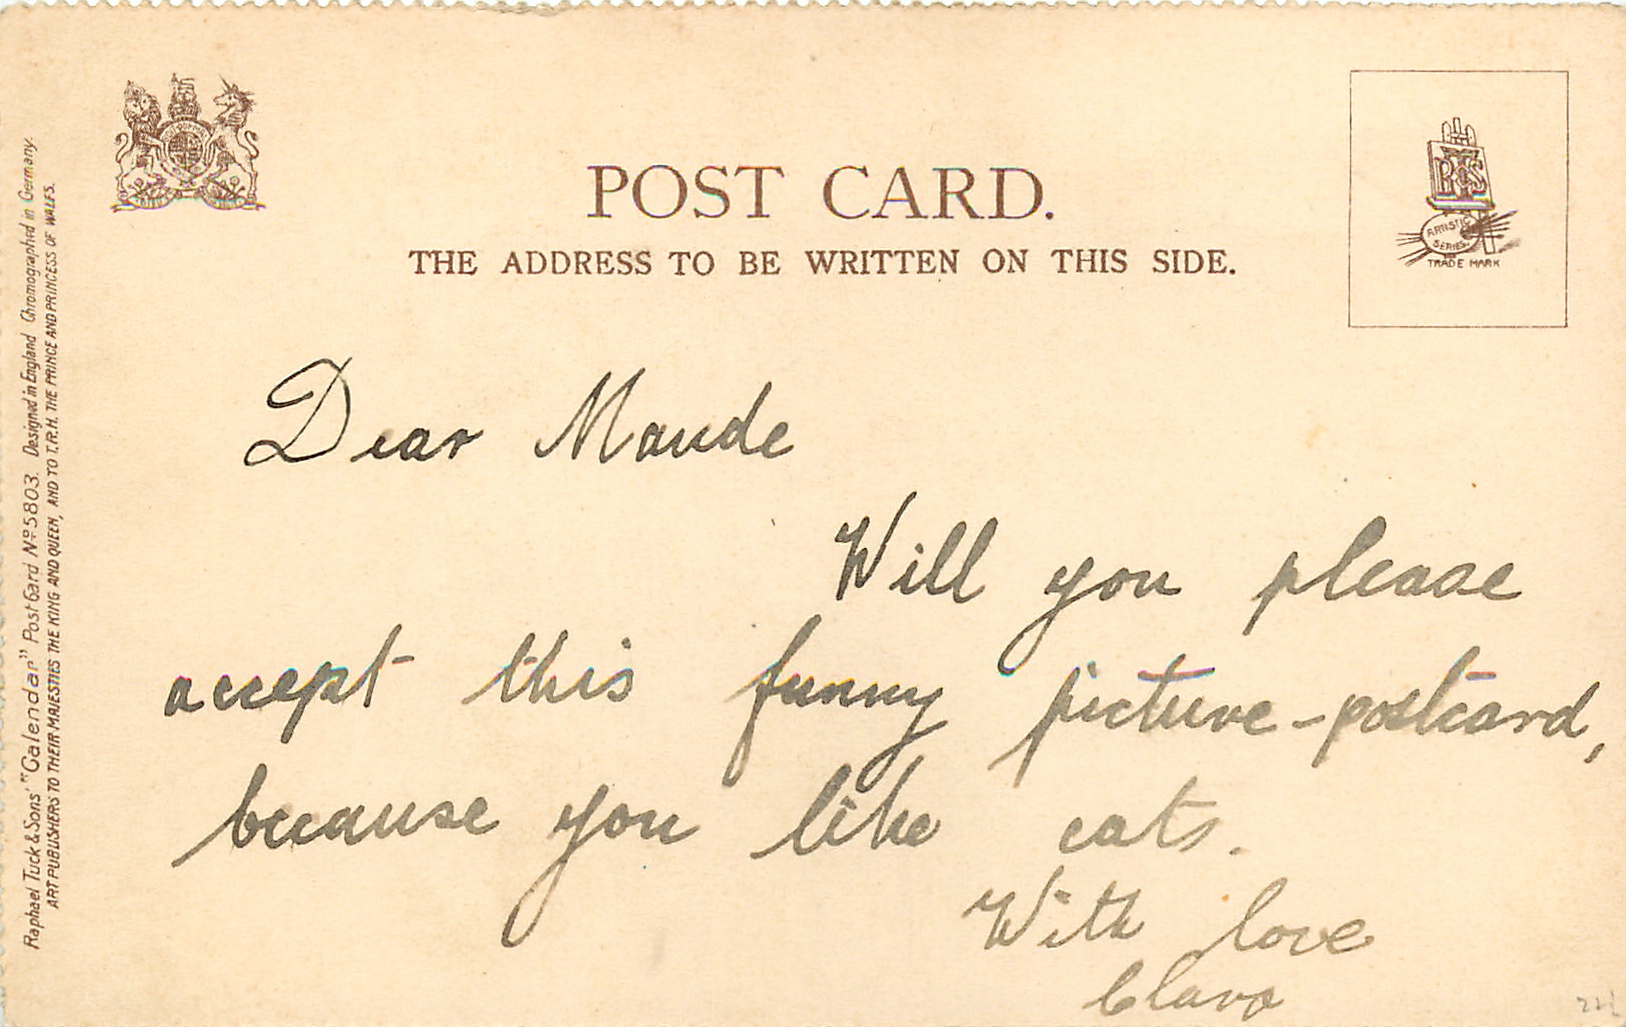 Raphael Tuck & Sons' "Calendar" Post Card No. 5803. Designed in England Chromographed in Germany.
ART PUBLISHERS TO THEIR MAJESTIES THE KING AND QUEEN, AND TO T.R.H. THE PRINCE AND PRINCESS OF WALES.
POST CARD.
THE ADDRESS TO BE WRITTEN ON THIS SIDE.
RTS
ARTISTIC
SERIES.
TRADE MARK
Dear Maude
Will you please
accept this funny picture-postcard,
because you like cats.
With love
Clara